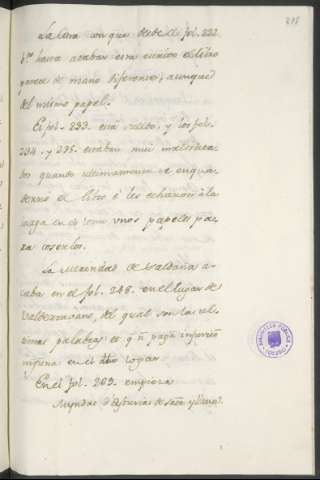 La letra con que desde el fol. 222
bto. hasta acabar esta escrito el libro
parece de mano diferente, aunque
del mismo papel.
El fol. 233. está suelto, y los fol.
234. y 235. estaban mui maltrata
dos quando ultimamente se enqua
derno el libro i les echaron a la
zaga en el lomo unos papeles pa
ra coserlos.
La Merindad de Saldaña a
caba en el fol. 248. en el lugar de
Valderrabano, del qual son las ul
timas palabras es q.n paga infurcion
ninguna en el dho logar.
En el fol. 269. empieza
Meyndat d'Esturias de Santa
BIBLIOTECA PUBLICA
TOLEDO